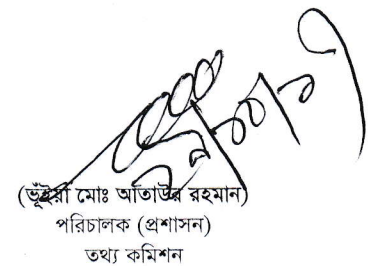 (ভূঁইয়া মোঃ আতাউর রহমান)
পরিচালক (প্রশাসন)
তথ্য কমিশন